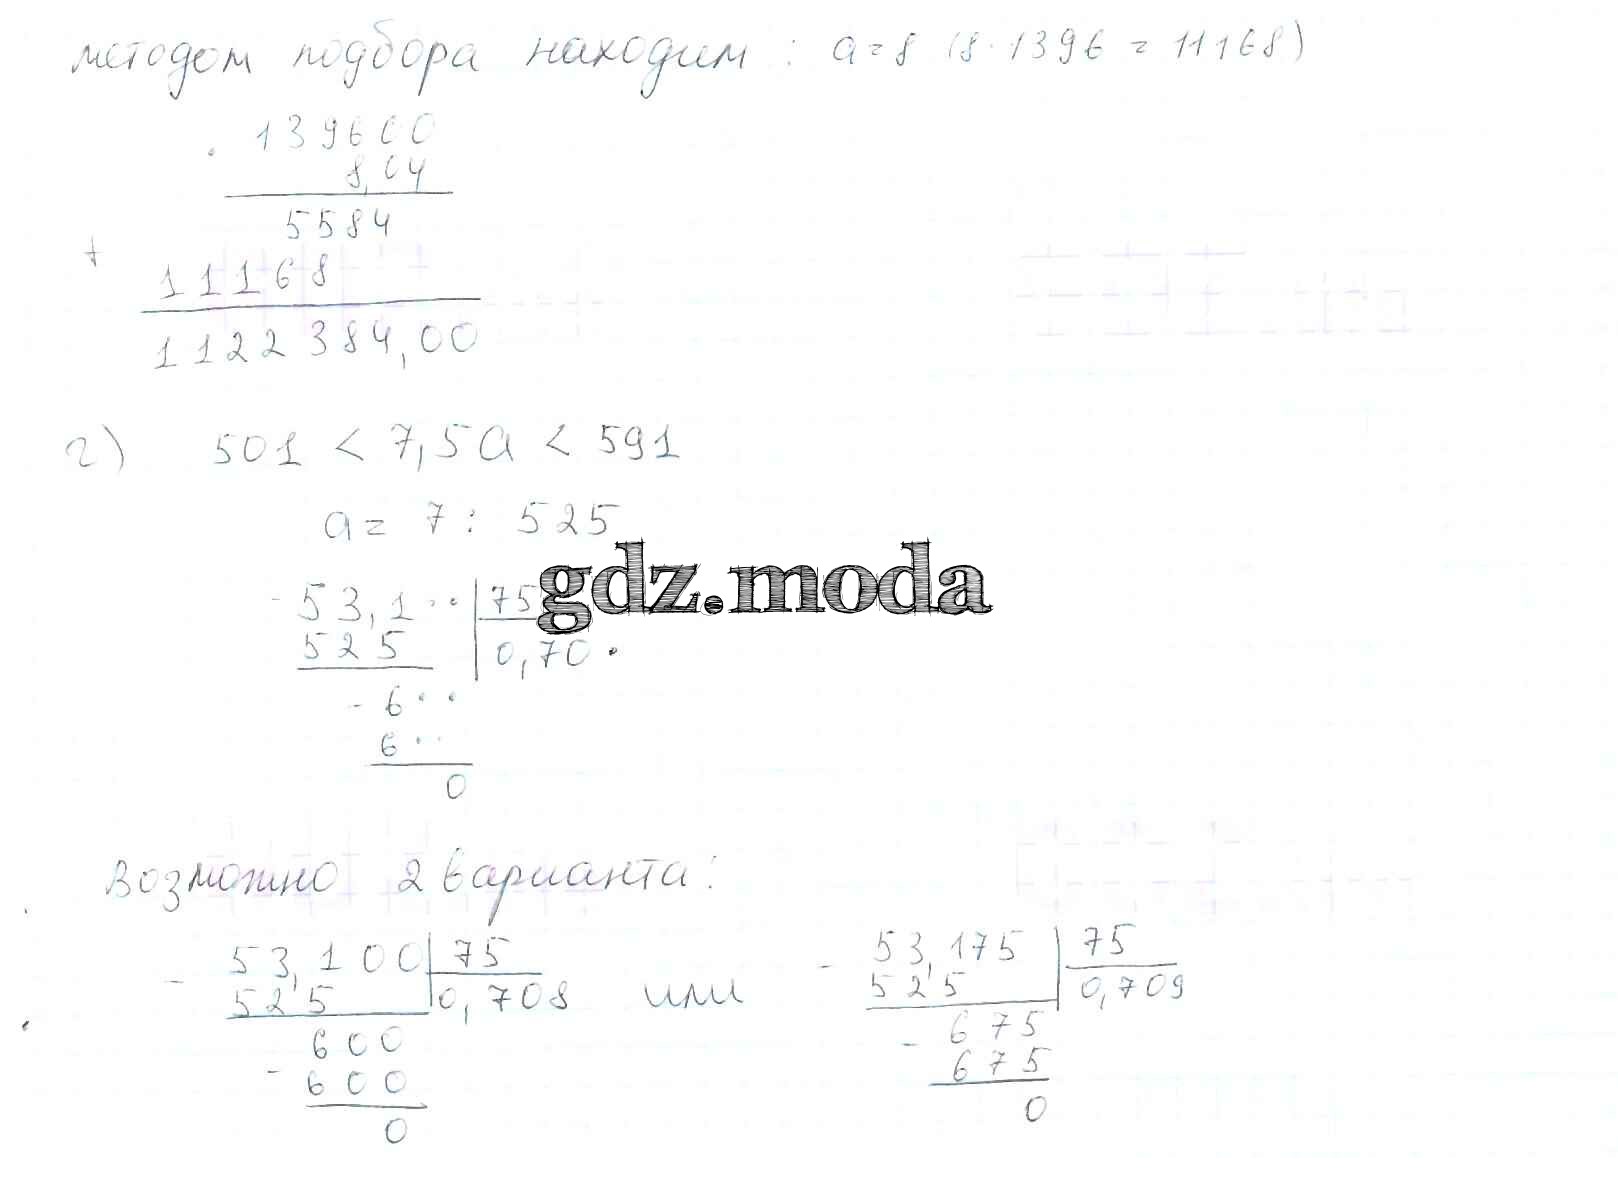 методом подбора находим : a = 8 (8 · 1396 = 11168)
· 139600
8,04
5584
+
11168
1122384,00
г) 501 < 7,5a < 591
a = 7 : 525
gdz.moda
- 53,1·· 75
525 0,70·
- 6··
6··
0
Возможно 2 варианта:
- 53,100 75
525 0,708
600
- 600
0
или
- 53,175 75
525 0,709
- 675
675
0